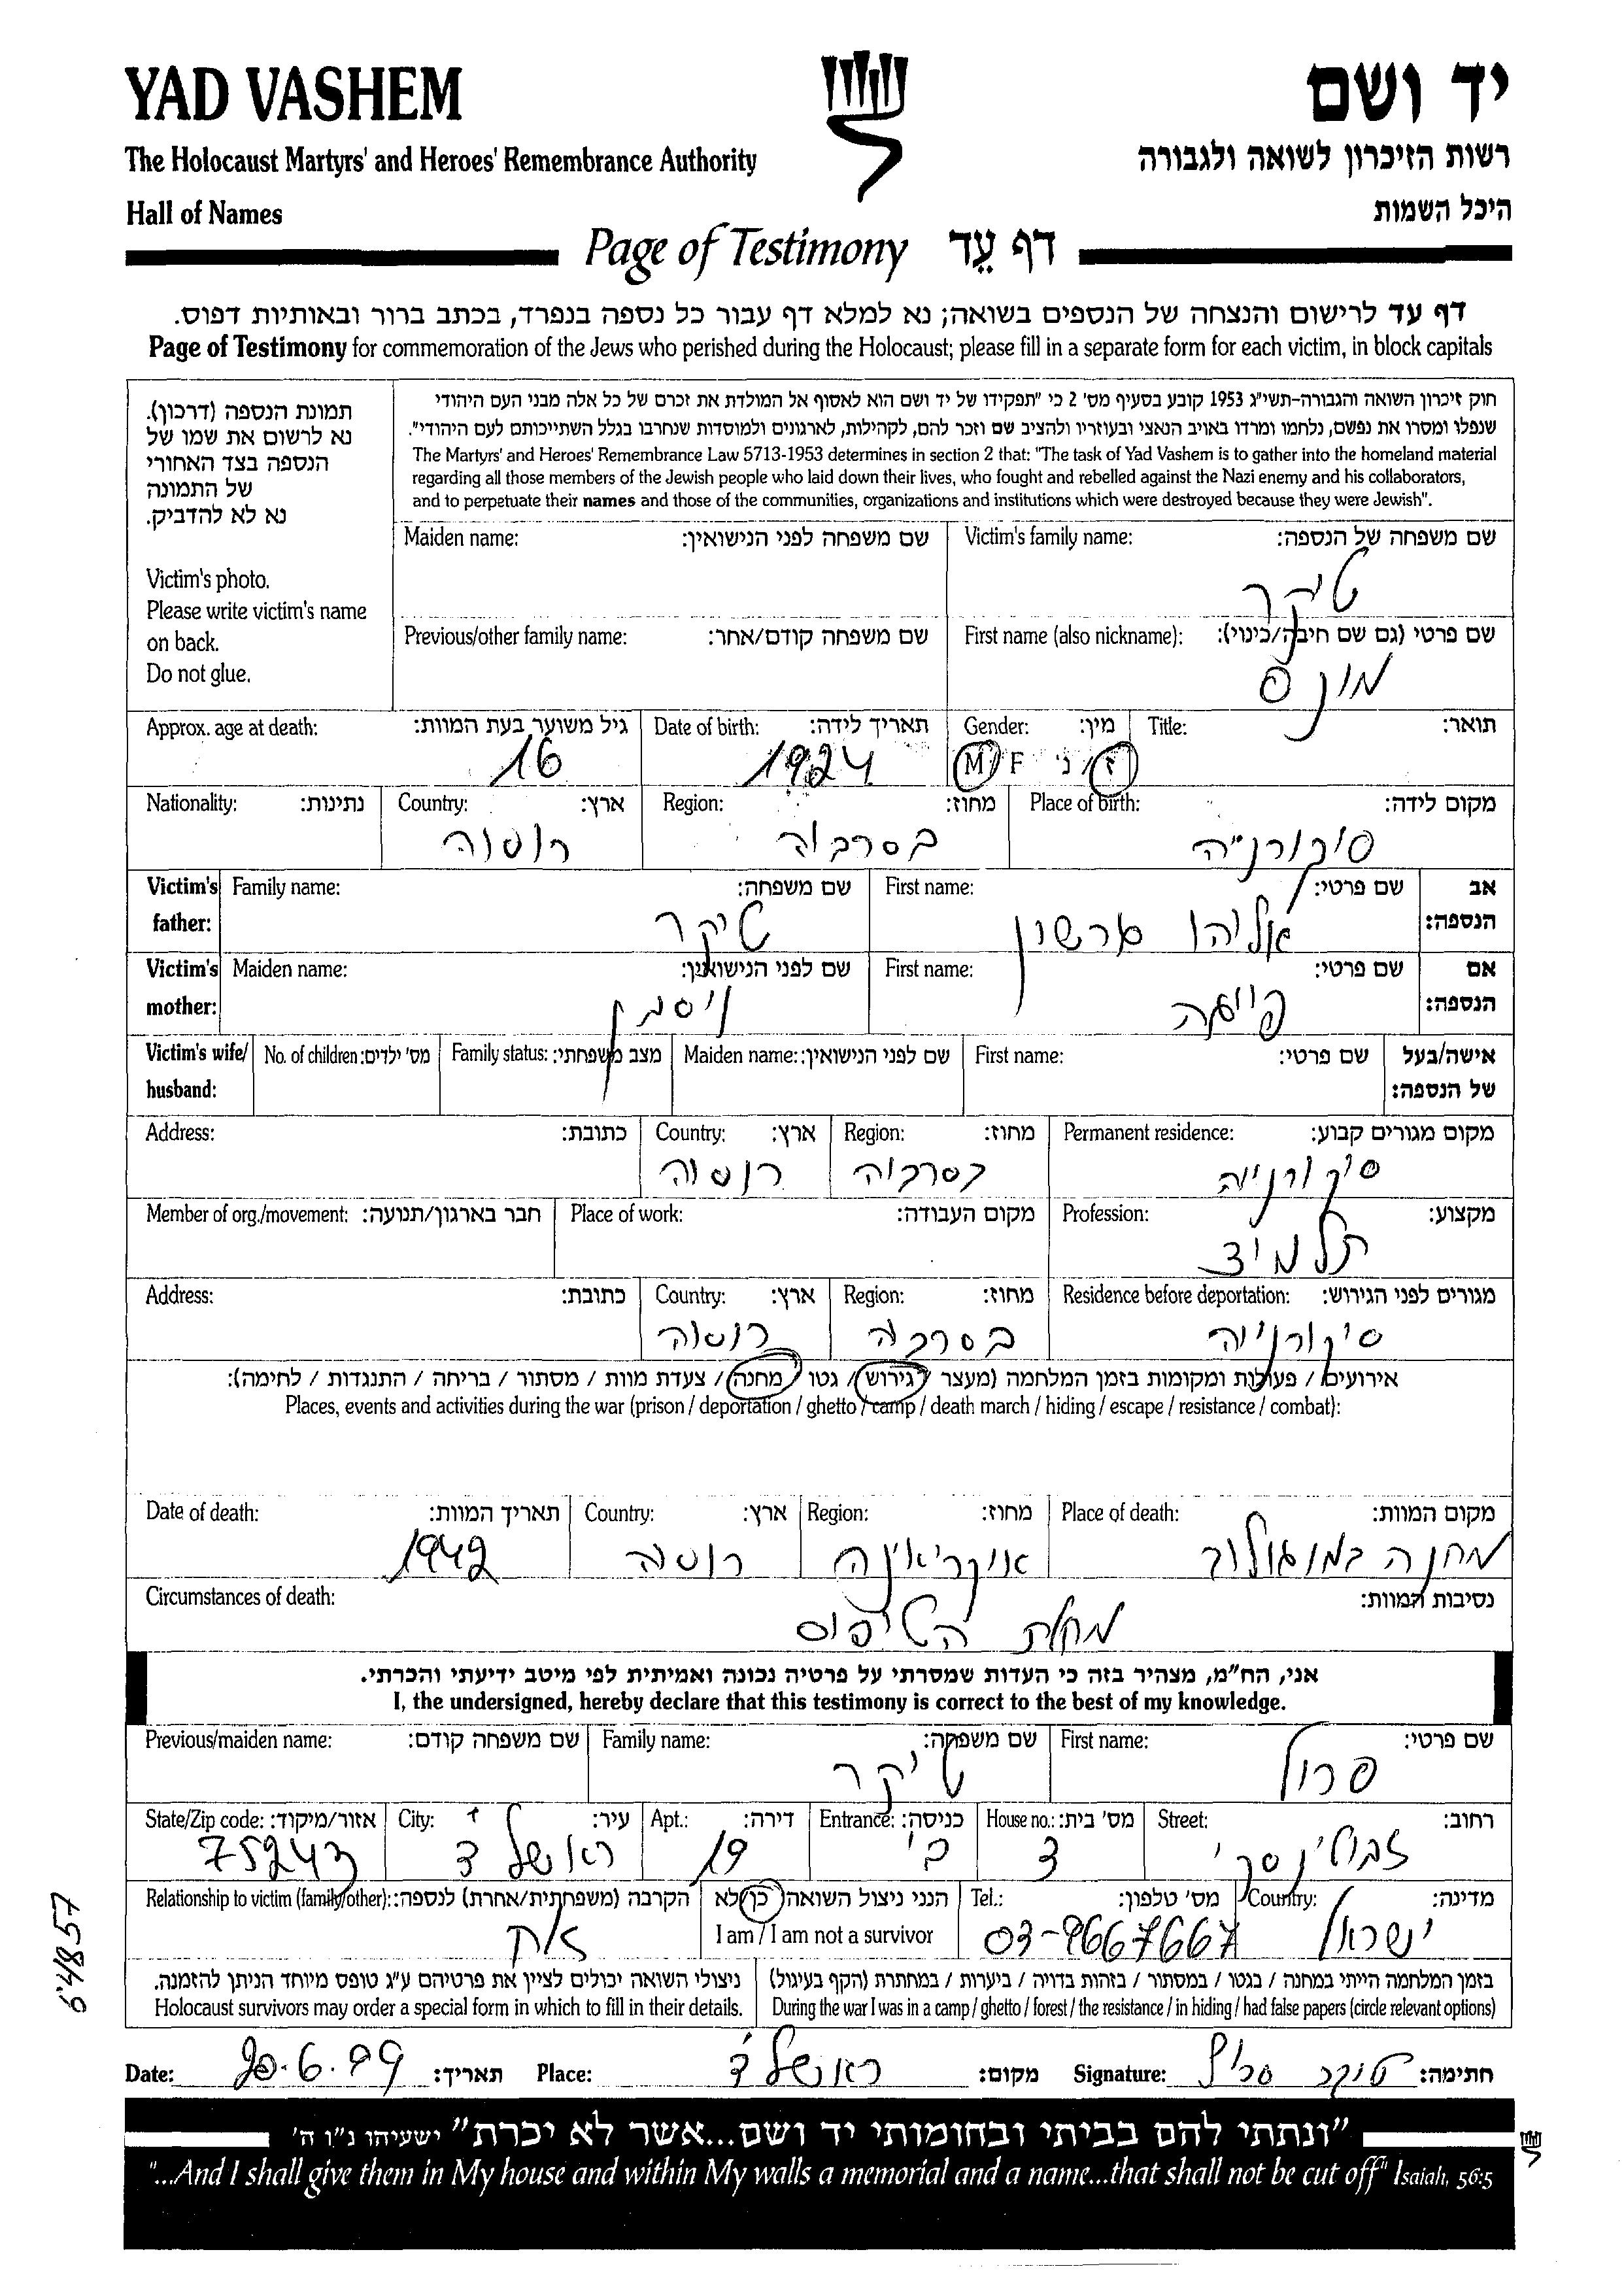 YAD VASHEM
יד ושם
The Holocaust Martyrs' and Heroes' Remembrance Authority
רשות הזיכרון לשואה ולגבורה
Hall of Names
היכל השמות
Page of Testimony דף עֵד
דף עד לרישום והנצחה של הנספים בשואה; נא למלא דף עבור כל נספה בנפרד, בכתב ברור ובאותיות דפוס.
Page of Testimony for commemoration of the Jews who perished during the Holocaust; please fill in a separate form for each victim, in block capitals
תמונת הנספה (דרכון).
נא לרשום את שמו של
הנספה בצד האחורי
של התמונה
נא לא להדביק.
Victim's photo.
Please write victim's name
on back.
Do not glue.
חוק זיכרון השואה והגבורה-תשי"ג 1953 קובע בסעיף מס' 2 כי "תפקידו של יד ושם הוא לאסוף אל המולדת את זכרם של כל אלה מבני העם היהודי
שנפלו ומסרו את נפשם, נלחמו ומרדו באויב הנאצי ובעוזריו ולהציב שם וזכר להם, לקהילות, לארגונים ולמוסדות שנחרבו בגלל השתייכותם לעם היהודי".
The Martyrs' and Heroes' Remembrance Law 5713-1953 determines in section 2 that: "The task of Yad Vashem is to gather into the homeland material
regarding all those members of the Jewish people who laid down their lives, who fought and rebelled against the Nazi enemy and his collaborators,
and to perpetuate their names and those of the communities, organizations and institutions which were destroyed because they were Jewish".
Victim's family name: שם משפחה של הנספה:
טיקר
Maiden name: שם משפחה לפני הנישואין:
First name (also nickname): שם פרטי (גם שם חיבה/כינוי):
Previous/other family name: שם משפחה קודם/אחר:
Title: תואר:
Gender: מין:
M / F ז / נ
Date of birth: תאריך לידה:
1924
Approx. age at death: גיל משוער בעת המוות:
16
Place of birth: מקום לידה:
סוקורנייה
Region: מחוז:
בסרביה
Country: ארץ:
רוסיה
Nationality: נתינות:
Victim's father: אב הנספה:
First name: שם פרטי:
אליהו גרשון
Family name: שם משפחה:
טיקר
Victim's mother: אם הנספה:
First name: שם פרטי:
פייגה
Maiden name: שם לפני הנישואין:
ויסמן
Victim's wife/husband: אישה/בעל של הנספה:
First name: שם פרטי:
Maiden name: שם לפני הנישואין:
Family status: מצב משפחתי:
No. of children: מס' ילדים:
Permanent residence: מקום מגורים קבוע:
סיקורנייה
Region: מחוז:
בסרביה
Country: ארץ:
רוסיה
Address: כתובת:
Profession: מקצוע:
תלמיד
Place of work: מקום העבודה:
Member of org./movement: חבר בארגון/תנועה:
Residence before deportation: מגורים לפני הגירוש:
סיקורנייה
Region: מחוז:
בסרביה
Country: ארץ:
רוסיה
Address: כתובת:
אירועים / פעולות ומקומות בזמן המלחמה (מעצר / גירוש / גטו / מחנה / צעדת מוות / מסתור / בריחה / התנגדות / לחימה):
Places, events and activities during the war (prison / deportation / ghetto / camp / death march / hiding / escape / resistance / combat):
Place of death: מקום המוות:
מחנה במוגילוב
Region: מחוז:
אוקראינה
Country: ארץ:
רוסיה
Date of death: תאריך המוות:
1942
Circumstances of death: נסיבות המוות:
מחלת הטיפוס
אני, הח"מ, מצהיר בזה כי העדות שמסרתי על פרטיה נכונה ואמיתית לפי מיטב ידיעתי והכרתי.
I, the undersigned, hereby declare that this testimony is correct to the best of my knowledge.
First name: שם פרטי:
Family name: שם משפחה:
טיקר
Previous/maiden name: שם משפחה קודם:
Street: רחוב:
House no.: מס' בית:
3
Entrance: כניסה:
ב'
Apt.: דירה:
19
City: עיר:
ראשל"צ
State/Zip code: אזור/מיקוד:
75243
Country: מדינה:
ישראל
Tel.: מס' טלפון:
03-9667667
הנני ניצול השואה כן/לא
I am / I am not a survivor
Relationship to victim (family/other): הקרבה (משפחתית/אחרת) לנספה:
אח
בזמן המלחמה הייתי במחנה / בגטו / במסתור / בזהות בדויה / ביערות / במחתרת (הקף בעיגול)
During the war I was in a camp / ghetto / forest / the resistance / in hiding / had false papers (circle relevant options)
ניצולי השואה יכולים לציין את פרטיהם ע"ג טופס מיוחד הניתן להזמנה.
Holocaust survivors may order a special form in which to fill in their details.
Date: 20.6.99 תאריך:
Place: ראשל"צ מקום:
Signature: חתימה:
"ונתתי להם בביתי ובחומותי יד ושם...אשר לא יכרת" ישעיהו נ"ו ה'
"...And I shall give them in My house and within My walls a memorial and a name...that shall not be cut off" Isaiah, 56:5